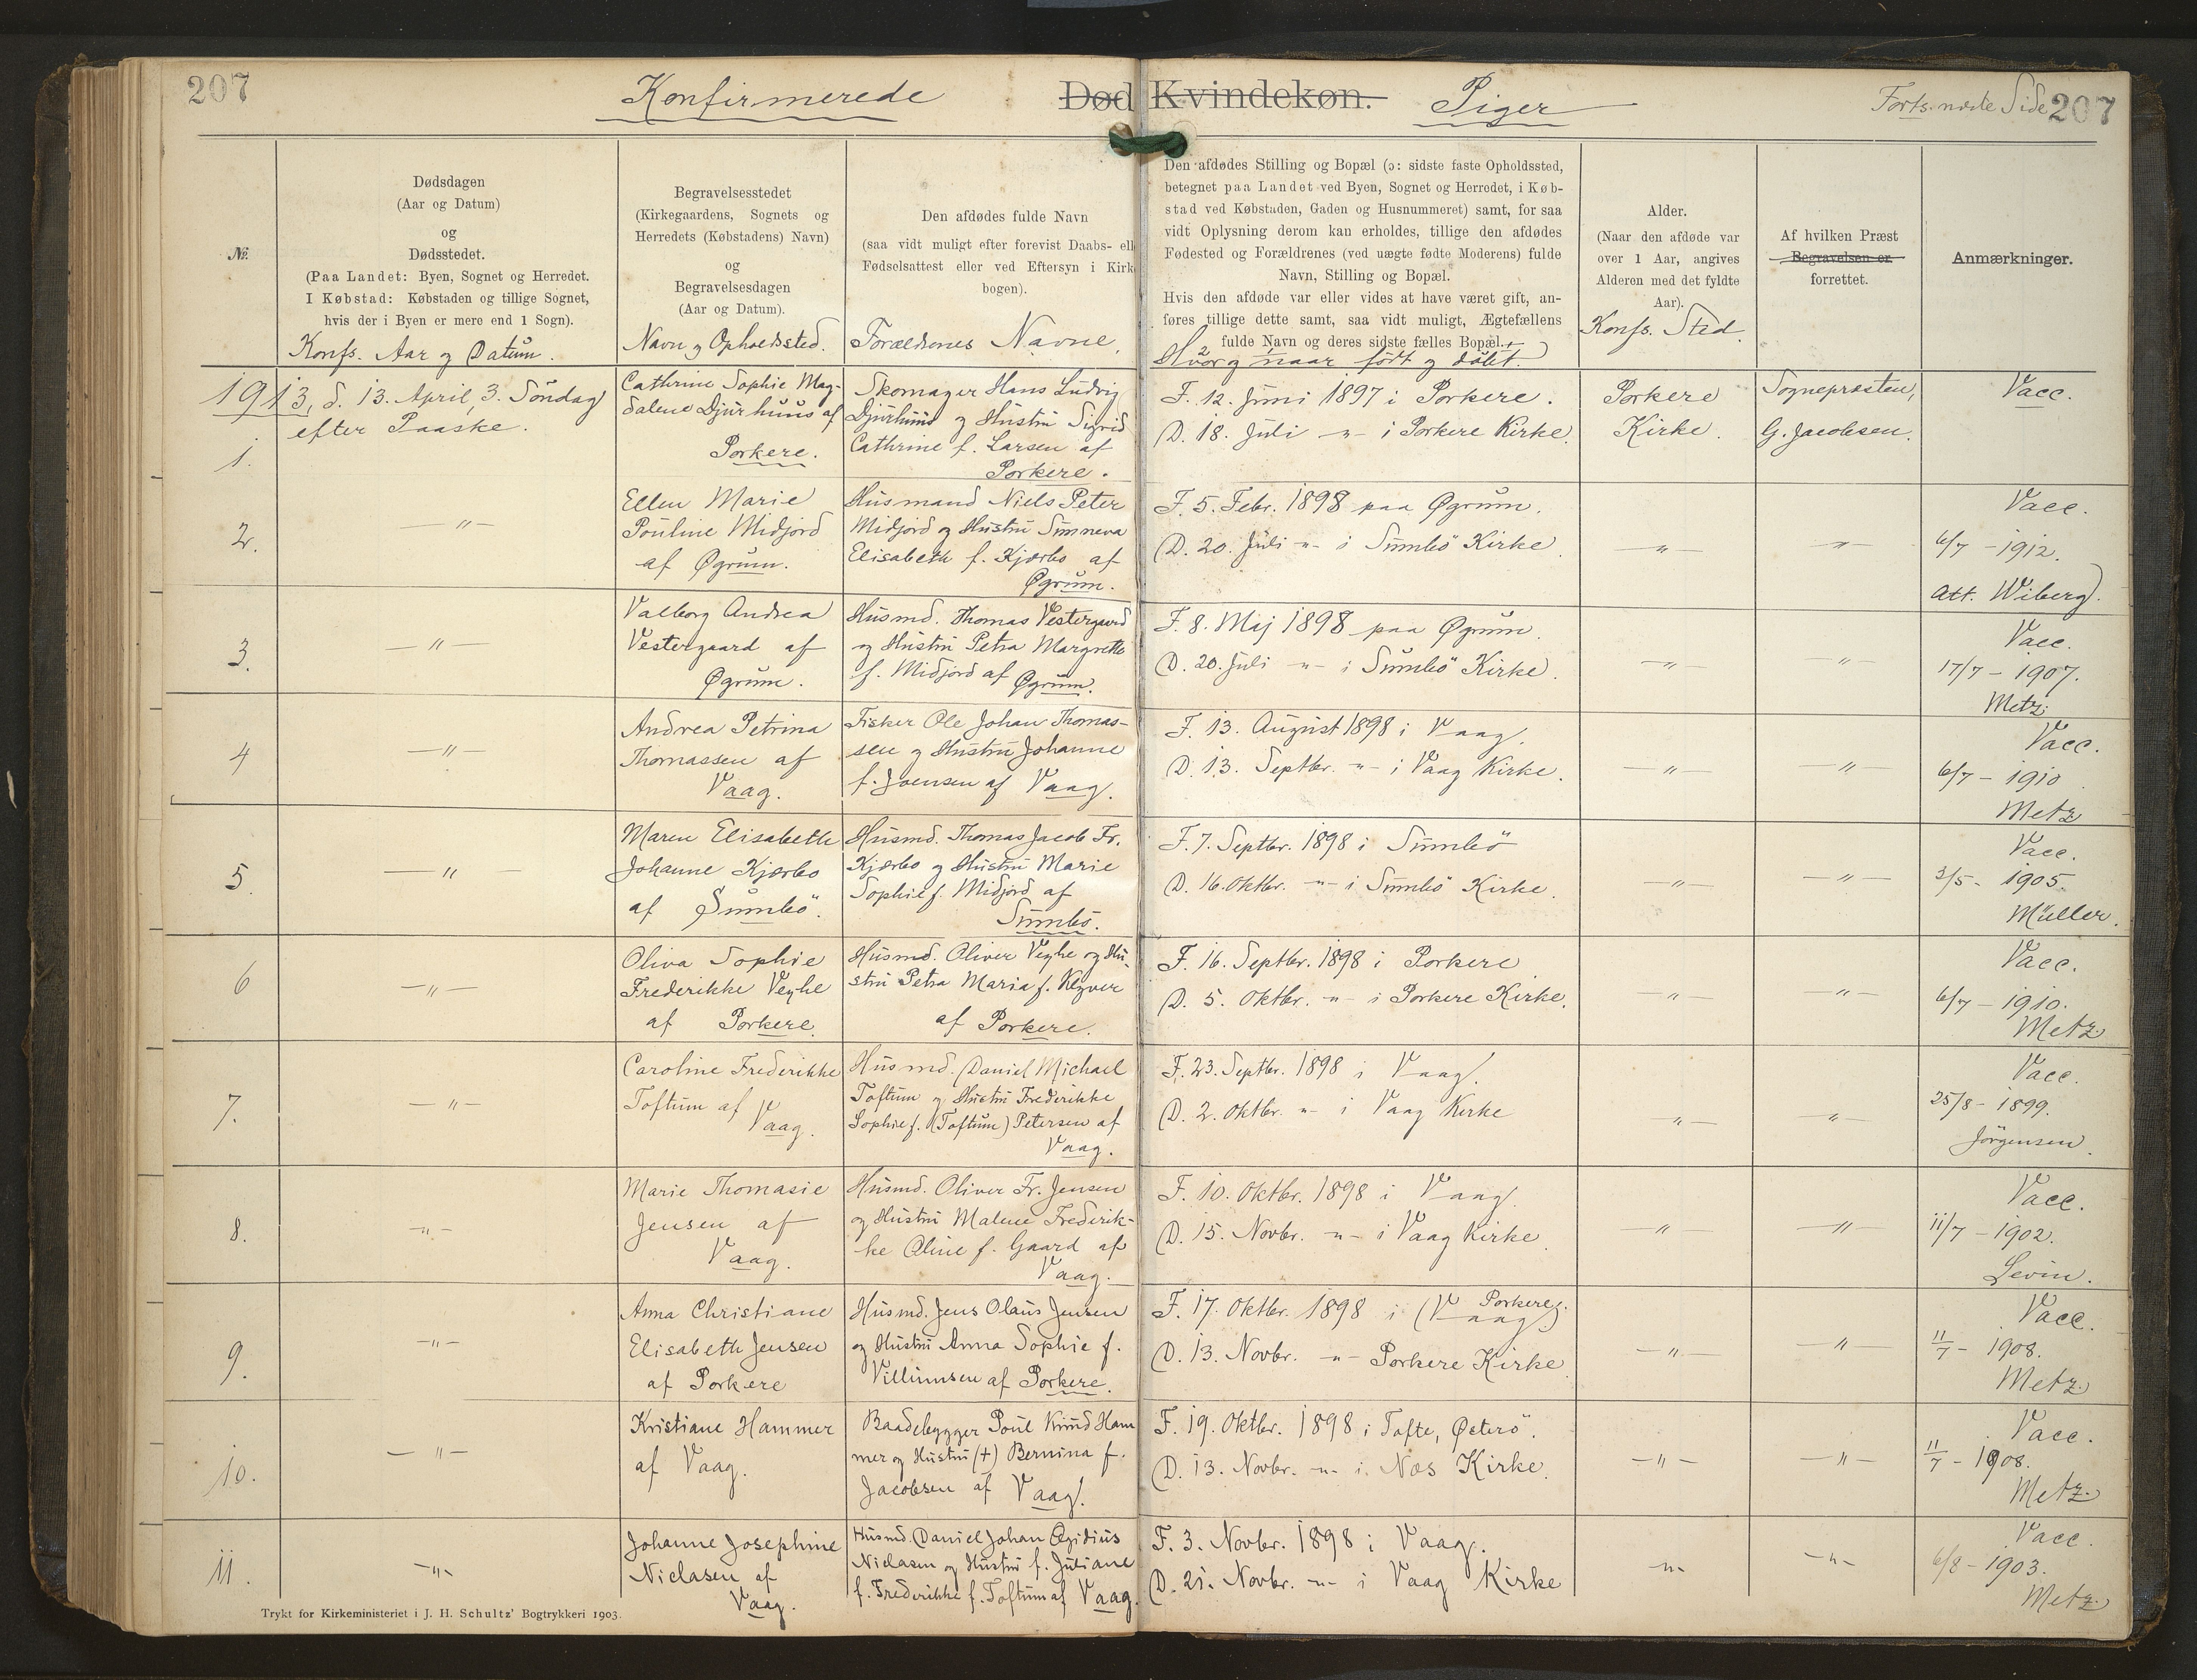 207
Konfirmerede
Død Kvindekøn.
Piger
Forts. næste Side
207
№.
Dødsdagen
(Aar og Datum)
og
Dødsstedet.
(Paa Landet: Byen, Sognet og Herredet.
I Købstad: Købstaden og tillige Sognet,
hvis der i Byen er mere end 1 Sogn).
Konfs. Aar og Datum.
Begravelsesstedet
(Kirkegaardens, Sognets og
Herredets (Købstadens) Navn)
og
Begravelsesdagen
(Aar og Datum).
Navn og Opholdssted.
Den afdødes fulde Navn
(saa vidt muligt efter forevist Daabs- ell
Fødselsattest eller ved Eftersyn i Kirk
bogen).
Forældrenes Navne.
Den afdødes Stilling og Bopæl (ɔ: sidste faste Opholdssted,
betegnet paa Landet ved Byen, Sognet og Herredet, i Køb-
stad ved Købstaden, Gaden og Husnummeret) samt, for saa
vidt Oplysning derom kan erholdes, tillige den afdødes
Fødested og Forældrenes (ved uægte fødte Moderens) fulde
Navn, Stilling og Bopæl.
Hvis den afdøde var eller vides at have været gift, an-
føres tillige dette samt, saa vidt muligt, Ægtefællens
fulde Navn og deres sidste fælles Bopæl.
Hvor og naar født og døbt.
Alder.
(Naar den afdøde var
over 1 Aar, angives
Alderen med det fyldte
Aar).
Konfs. Sted.
Af hvilken Præst
Begravelsen er
forrettet.
Anmærkninger.
1913, d. 13. April, 3. Söndag
efter Paaske.
1.
Cathrine Sophie Mag-
dalene Djurhuus af
Porkere.
Skomager Hans Ludvig
Djurhuus og Hustru Sigrid
Cathrine f. Larsen af
Porkere.
F. 12. Juni 1897 i Porkere.
D. 18. Juli -"- i Porkere Kirke.
Porkere
Kirke.
Sognepræsten,
G. Jacobsen.
Vacc.
2.
-"-
Ellen Marie
Pouline Midjord
af Øgrum.
Husmand Niels Peter
Midjord og Hustru Sunneva
Elisabeth f. Kjærbo af
Øgrum.
F. 5. Febr. 1898 paa Øgrum.
D. 20. Juli -"- i Sumbö Kirke.
-"-
-"-
Vacc.
6/7 - 1912.
Att. Wiberg.
3.
-"-
Valborg Andrea
Vestergaard af
Øgrum.
Husmd. Thomas Vestergaard
og Hustru Petra Margrethe
f. Midjord af Øgrum.
F. 8. Maj 1898 paa Øgrum.
D. 20. Juli -"- i Sumbö Kirke.
-"-
-"-
Vacc.
17/7 - 1907.
Metz.
4
-"-
Andrea Petrina
Thomassen af
Vaag.
Fisker Ole Johan Thomas-
sen og Hustru Johanne
f. Joensen af Vaag.
F. 13. August 1898 i Vaag.
D. 13. Septbr. -"- i Vaag Kirke.
-"-
-"-
Vacc.
6/7 - 1910
Metz
5.
-"-
Maren Elisabeth
Johanne Kjærbo
af Sumbö.
Husmd. Thomas Jacob Fr.
Kjærbo og Hustru Marie
Sophie f. Midjord af
Sumbö.
F. 7. Septbr. 1898 i Sumbö
D. 16. Oktbr. -"- i Sumbö Kirke.
-"-
-"-
Vacc.
3/5 - 1905.
Müller.
6
-"-
Oliva Sophie
Frederikke Veyhe
af Porkere.
Husmd. Oliver Veyhe og Hu-
stru Petra Maria f. Klyver
af Porkere.
F. 16. Septbr. 1898 i Porkere
D. 5. Oktbr. -"- i Porkere Kirke.
-"-
-"-
Vacc.
6/7 - 1910.
Metz.
7.
-"-
Caroline Frederikke
Toftum af Vaag.
Husmd. Daniel Michael
Toftum og Hustru Frederikke
Sophie f. (Toftum) Petersen af
Vaag.
F. 23. Septbr. 1898 i Vaag.
D. 2. Oktbr. -"- i Vaag Kirke
-"-
-"-
Vacc.
25/8 - 1899.
Jörgensen.
8.
-"-
Marie Thomasie
Jensen af
Vaag.
Husmd. Oliver Fr. Jensen
og Hustru Malene Frederik-
ke Oline f. Gaard af
Vaag.
F. 10. Oktbr. 1898 i Vaag.
D. 15. Novbr. -"- i Vaag Kirke.
-"-
-"-
Vacc.
11/7 - 1902.
Levin.
9.
-"-
Anna Christiane
Elisabeth Jensen
af Porkere
Husmd. Jens Olaus Jensen
og Hustru Anna Sophie f.
Villumsen af Porkere.
F. 17. Oktbr. 1898 i (Vaag) Porkere.
D. 13. Novbr. -"- Porkere Kirke.
-"-
-"-
Vacc.
11/7 - 1908.
Metz.
10.
-"-
Kristiane Hammer
af Vaag.
Baadebygger Poul Knud Ham
mer og Hustru (+) Bernina f.
Jacobsen af Vaag.
F. 19. Oktbr. 1898 i Tofte, Österö.
D. 13. Novbr. -"- i Næs Kirke.
-"-
-"-
Vacc.
11/7 - 1908.
Metz.
11.
-"-
Johanne Josephine
Niclasen af
Vaag.
Husmd. Daniel Johan Ægidius
Niclasen og Hustru f. Juliane
f. Frederikke f. Toftum af Vaag.
F. 3. Novbr. 1898 i Vaag.
D. 21. Novbr. -"- i Vaag Kirke
-"-
-"-
Vacc.
6/8 - 1903.
Metz.
Trykt for Kirkeministeriet i J. H. Schultz' Bogtrykkeri 1903.